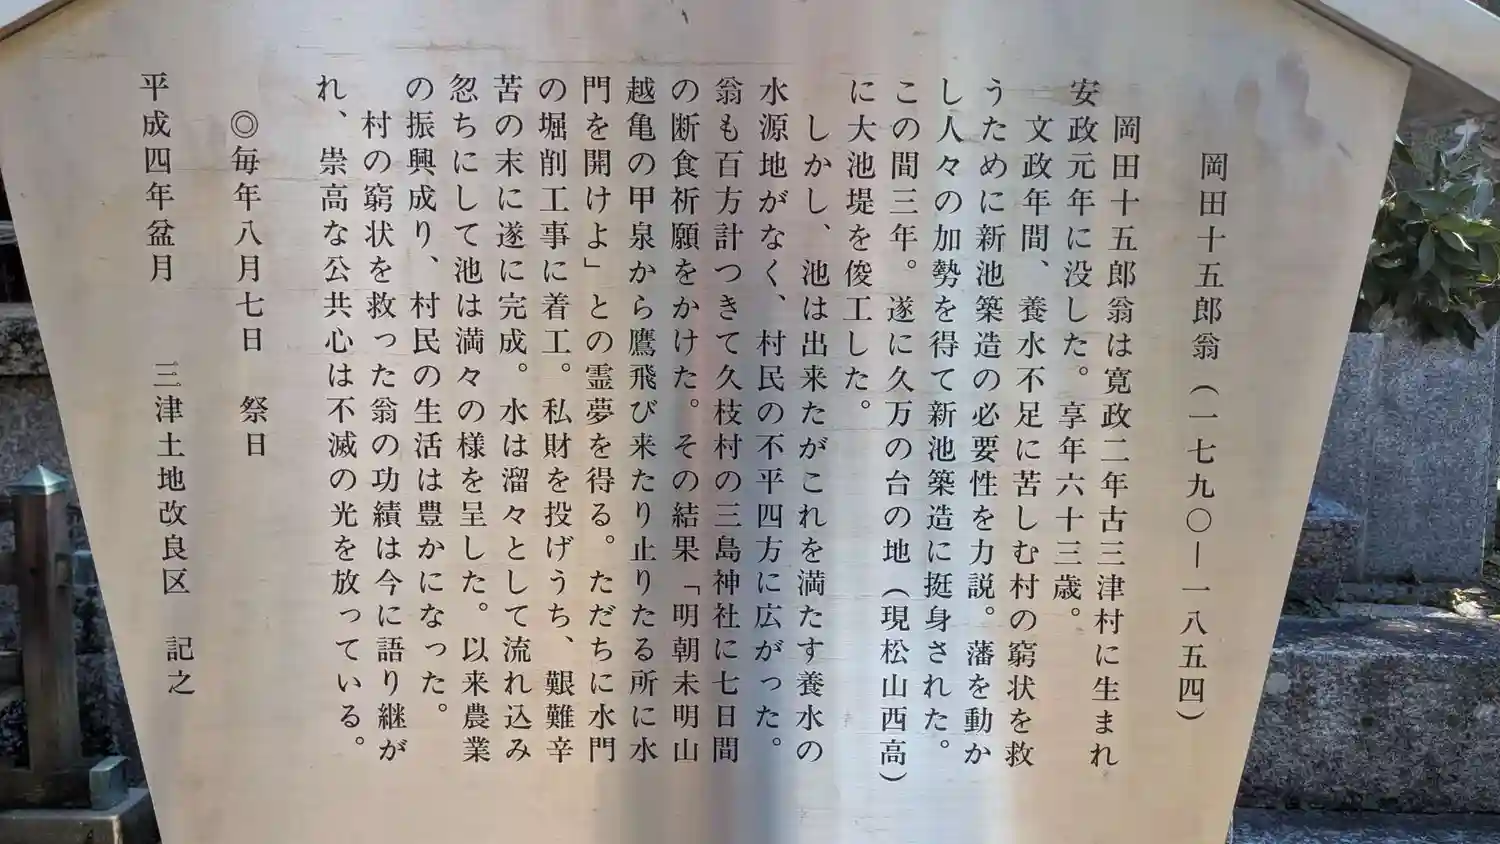 岡田十五郎翁（一七九〇ー一八五四）
岡田十五郎翁は寛政二年古三津村に生まれ
安政元年に没した。享年六十三歳。
文政年間、養水不足に苦しむ村の窮状を救
うために新池築造の必要性を力説。藩を動か
し人々の加勢を得て新池築造に挺身された。
この間三年。遂に久万の台の地（現松山西高）
に大池堤を俊工した。
しかし、池は出来たがこれを満たす養水の
水源地がなく、村民の不平四方に広がった。
翁も百方計つきて久枝村の三島神社に七日間
の断食祈願をかけた。その結果「明朝未明山
越亀の甲泉から鷹飛び来たり止りたる所に水
門を開けよ」との霊夢を得る。ただちに水門
の堀削工事に着工。私財を投げうち、艱難辛
苦の末に遂に完成。水は溜々として流れ込み
忽ちにして池は満々の様を呈した。以来農業
の振興成り、村民の生活は豊かになった。
村の窮状を救った翁の功績は今に語り継が
れ、崇高な公共心は不滅の光を放っている。
◎毎年八月七日　祭日
平成四年盆月　三津土地改良区　記之